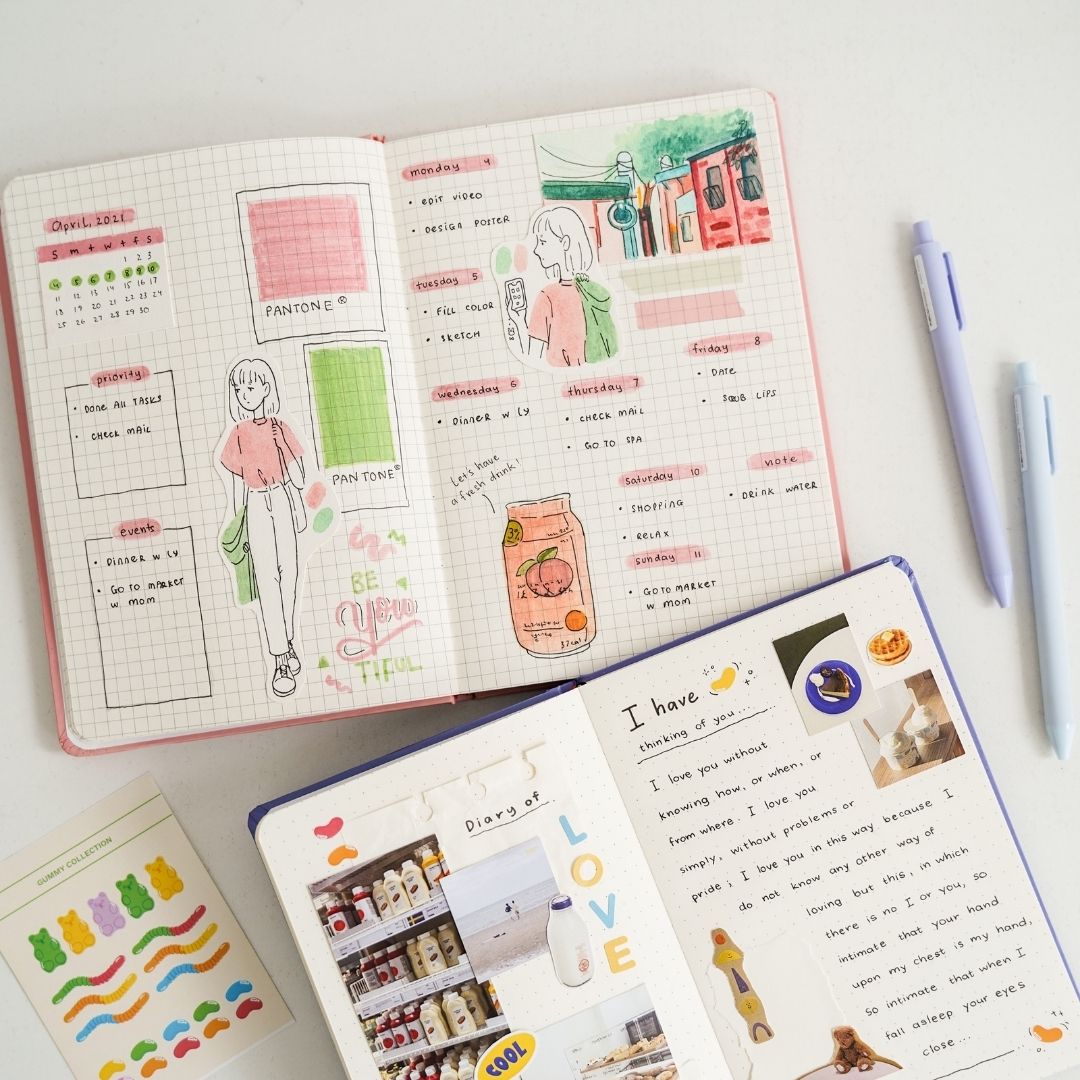 April, 2021
S m t w t f s
1 2 3
4 5 6 7 8 9 10
11 12 13 14 15 16 17
18 19 20 21 22 23 24
25 26 27 28 29 30
priority
• DONE ALL TASKS
• CHECK MAIL
events
• DINNER W LY
• GO TO MARKET
W. MOM
PANTONE ®
PANTONE®
BE
you
TIFUL
monday 4
• EDIT VIDEO
• DESIGN POSTER
tuesday 5
• FILL COLOR
• SKETCH
wednesday 6
• DINNER W LY
thursday 7
• CHECK MAIL
• GO TO SPA
friday 8
• DATE
• SCRUB LIPS
saturday 10
• SHOPPING
• RELAX
note
• DRINK WATER
sunday 11
• GO TO MARKET
W MOM
Let's have
a fresh drink!
3%
37cal
GUMMY COLLECTION
Diary of
LOVE
COOL
I have
thinking of you....
I love you without
knowing how, or when, or
from where. I love you
simply, without problems or
pride; I love you in this way because I
do not know any other way of
loving but this, in which
there is no I or you, so
intimate that your hand
upon my chest is my hand,
so intimate that when I
fall asleep your eyes
close...